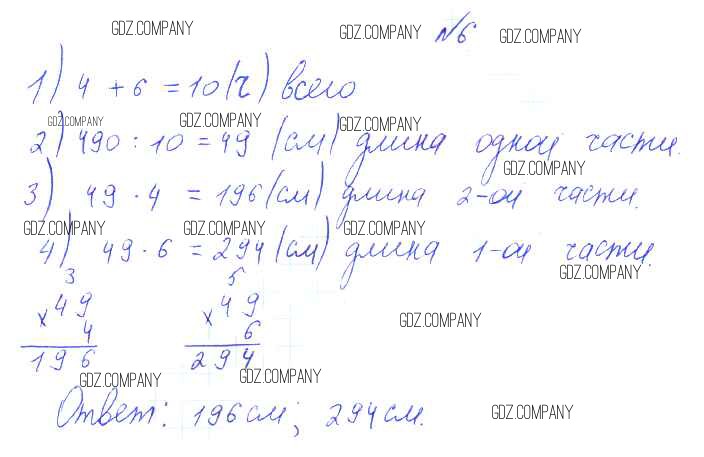 GDZ.COMPANY GDZ.COMPANY №6 GDZ.COMPANY
1) 4 + 6 = 10 (ч) всего
GDZ.COMPANY GDZ.COMPANY GDZ.COMPANY
2) 490 : 10 = 49 (см) длина одной части.
GDZ.COMPANY
3) 49 · 4 = 196 (см) длина 2-ой части.
GDZ.COMPANY GDZ.COMPANY GDZ.COMPANY
4) 49 · 6 = 294 (см) длина 1-ой части.
GDZ.COMPANY
3 5
×49 ×49
4 6
GDZ.COMPANY
196 294
GDZ.COMPANY GDZ.COMPANY
Ответ: 196 см; 294 см.
GDZ.COMPANY